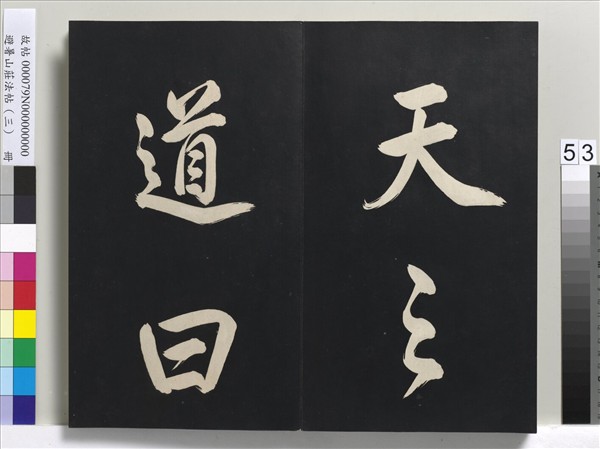 天之
道曰
故帖 000079N000000000
避暑山莊法帖（三） 冊
53